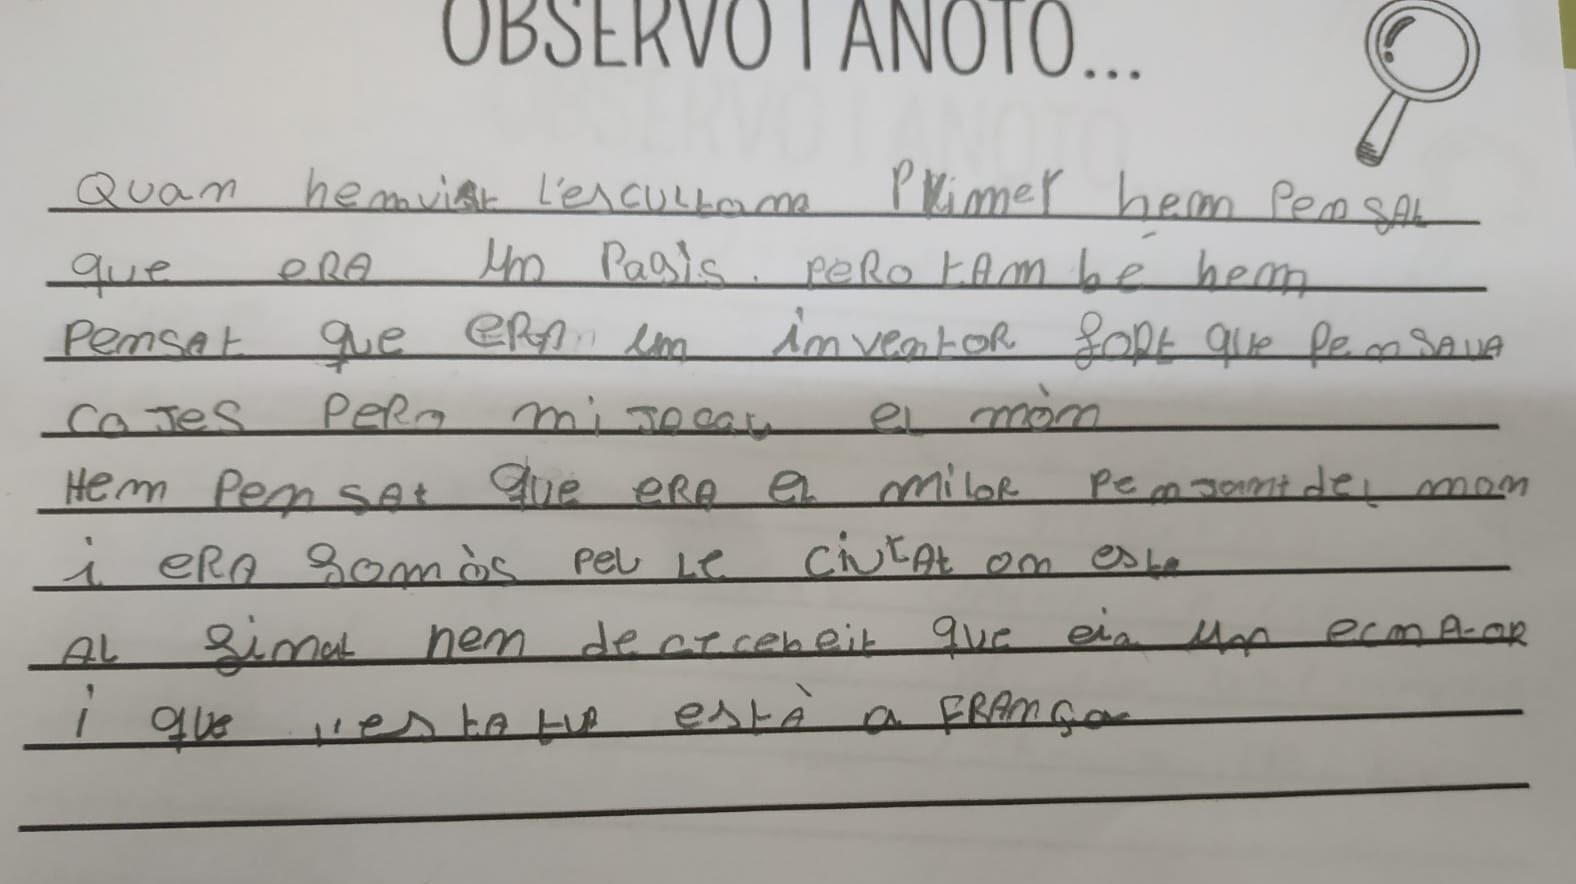 OBSERVO I ANOTO...
Quan hem vist l'escultama Primer hem Pensat
que ERA un Pagis. PERO tAm bé hem
Pensat que ERA un inventoR fort que PenSAVA
coses PERo mi tocau el mòn
Hem PenSAt que ERA el miloR Pensant del mon
i ERA fomòs pel le CiutAt on este
AL final hem que eia un
i que l'estAtuA estÀ a FRAnça